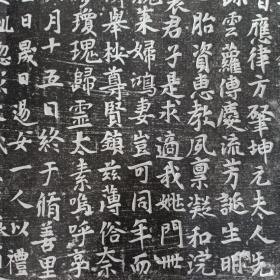 應律方肇坤元夫人先
雲蘿傳慶流芳誕生明
胎資惠教夙稟凝和
君子是求適我姚門卅
萊婦鴻妻豈可同年而
舉桉尊賢鎮茲薄俗奈
瓊瑰歸靈太素嗚呼享
月十五日終于脩善里
日晟日湯女一人以禮